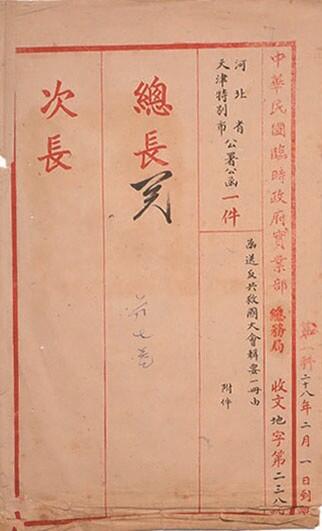 中華民國臨時政府實業部
總務局
收文地字第二三八
二十八年二月一日到
河北省
天津特別市
公署公函一件
函送反共救國大會輯要一冊由
附件
總長
次長